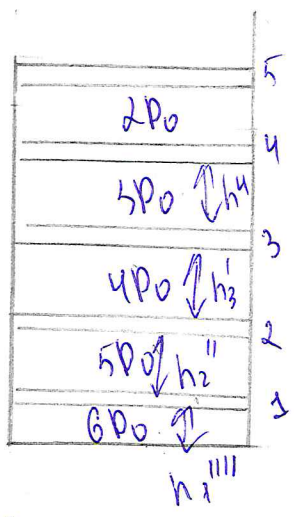 5
2P₀
4
3P₀ h₄
3
4P₀ h₃'
2
5P₀ h₂''
1
6P₀
h₁''''